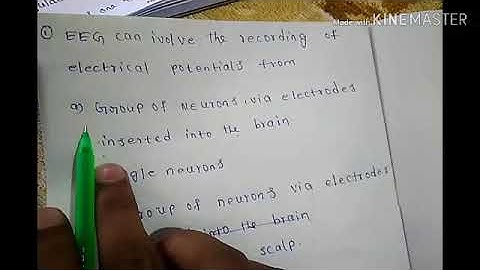 Made with KINEMASTER
① EEG can ivolve the recording of
electrical potentials from
a) Group of Neurons via electrodes
inserted into the brain
neurons
of neurons via electrodes
into the brain
scalp.